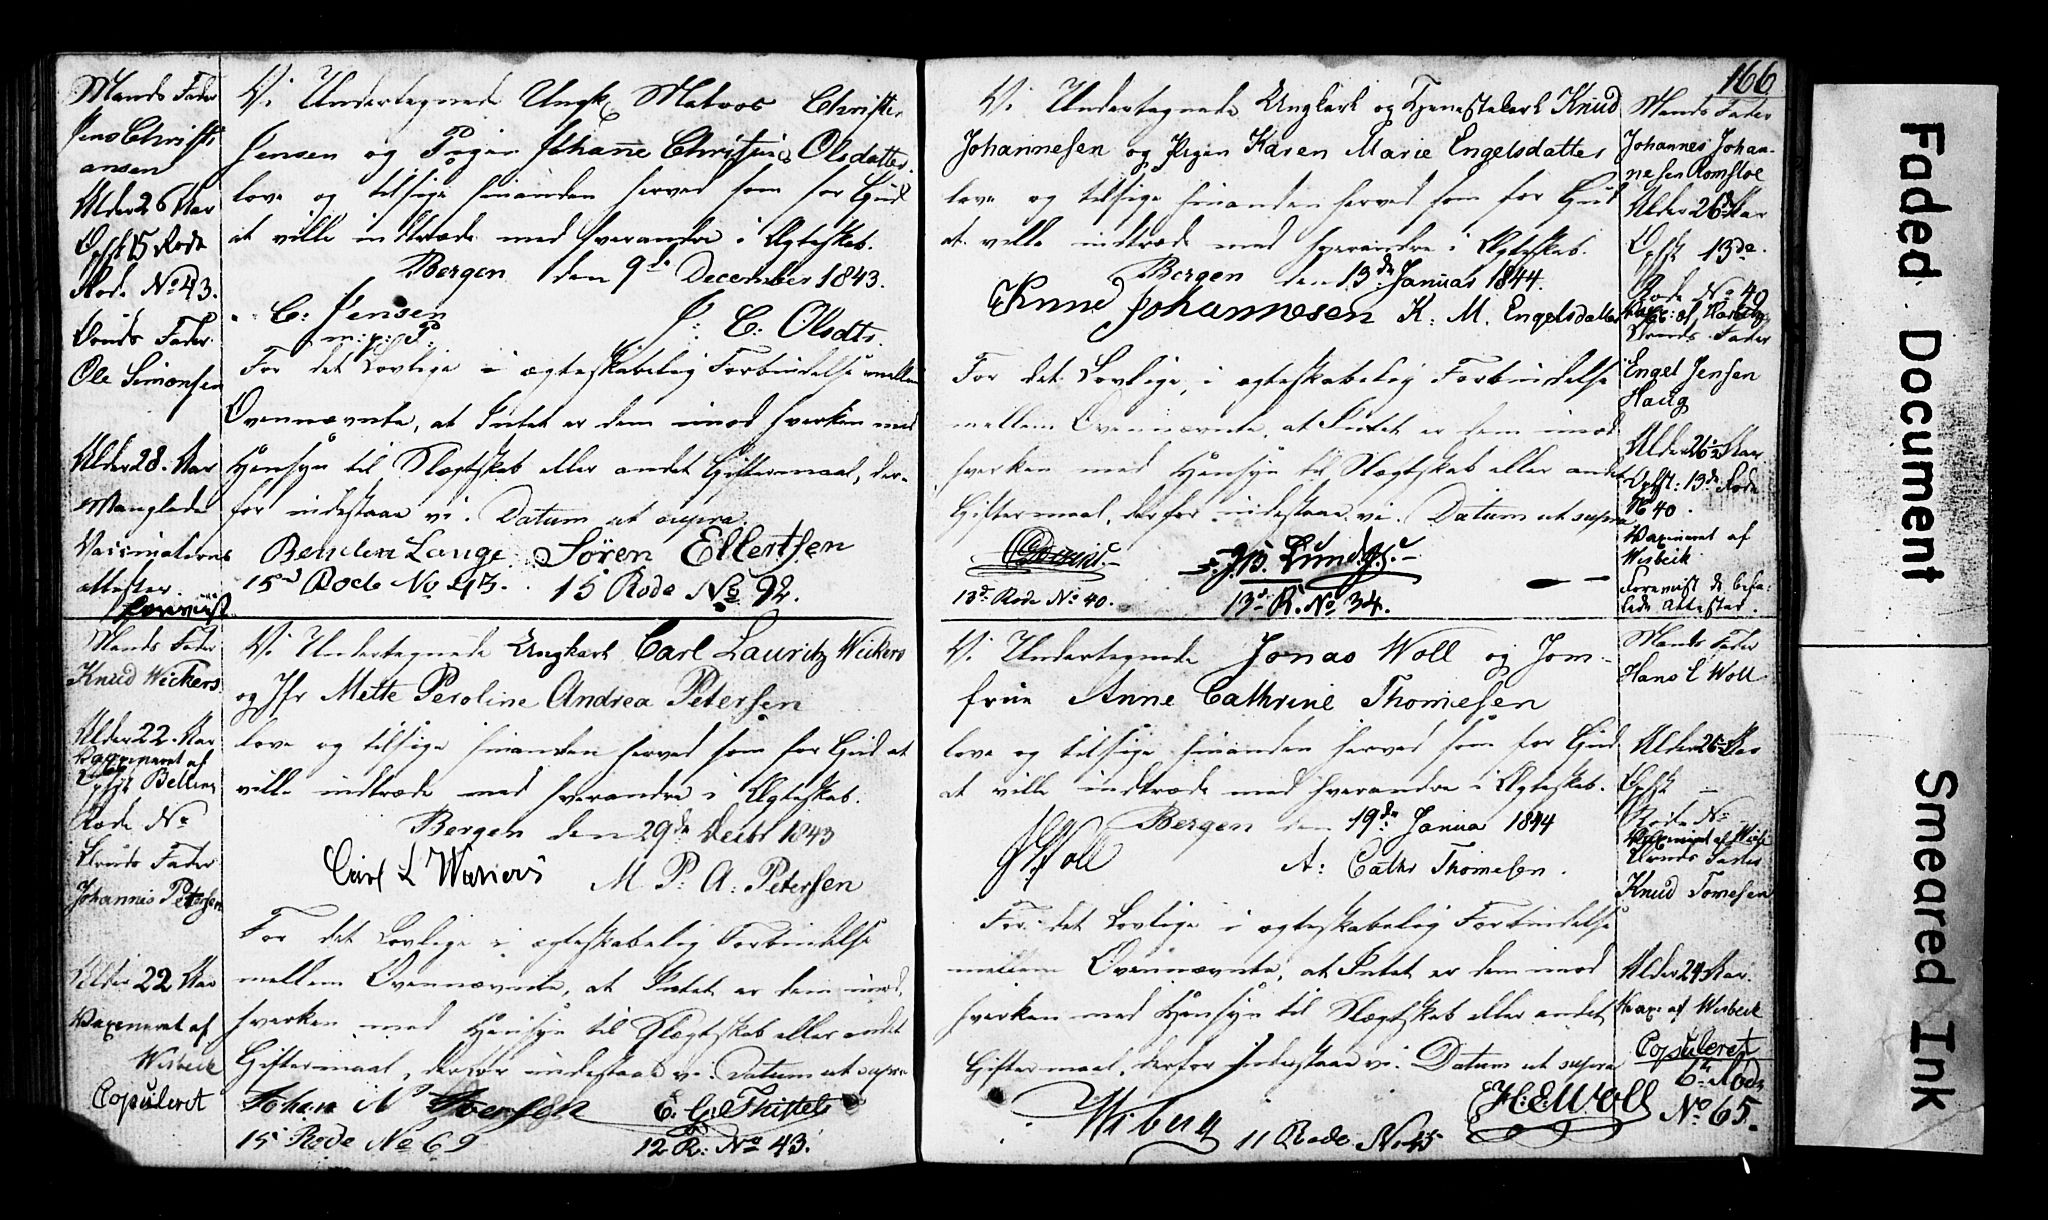 Mands Fader
Jens Christi
ansen
Alder 26 Aar
Opht 15 Rode
Rode No 43.
Bruds Fader
Ole Simonsen
Alder 28. Aar
Manglede
Vaccinations
attester.
Vi Undertegnede Ungk. Matros Christi
Jensen og Pigen Johanne Christine Olsdatter.
love og tilsige hinanden herved som for Gud
at ville indtræde med hverandre i Ægteskab.
Bergen den 9de December 1843.
C: Jensen
m: p: P:
J: C: Olsdtr.
For det Lovlige i ægteskabelig Forbindelse mellem
Ovennævnte, at Intet er dem imod hverken med
Hensyn til Slægtskab eller andet Giftermaal, der-
for indestaae vi. Datum ut supra.
Lange. Sören Ellertsen
15d Rode No 43. 15 Rode No 92.
Mands Fader
Knud Wickers
Alder 22. Aar
Vaxineret af
Opht
Rode No
Bruds Fader
Johannis Petersen
Alder 22 Aar
Vaxineret af
Wisbeck
Copuleret
Vi Undertegnede Ungkarl Carl Lauritz Wickers
og Jfr Mette Peroline Andrea Petersen
love og tilsige hinanden herved som for Gud at
ville indtræde med hverandre i Ægteskab.
Bergen den 29de Decbr 1843
Carl L
M P: A: Petersen
For det Lovlige i ægteskabelig Forbindelse
mellem Ovennævnte, at Intet er dem imod,
hverken med Hensyn til Slægtskab eller andet
Giftermaal, derfor indestaae vi. Datum ut supra
Johan
15 Rode No 69
12 R: No 43.
166
Vi Undertegnede Ungkarl og Tjenestekarl Knud
Johannesen og Pigen Karen Marie Engelsdatter
love og tilsige hinanden herved som for Gud
at ville indtræde med hverandre i Ægteskab.
Bergen den 13de Januar 1844.
Johannesen K. M. Engelsdatter
For det Lovlige, i ægteskabelig Forbindelse
mellem Ovennævnte, at Intet er dem imod
hverken med Hensyn til Slægtskab eller andet
Giftermaal, derfor indestaae vi. Datum ut supra
Lund
13de Rode No 40. 13d R. No 34.
Mands Fader
Johannes Johan-
nesen Romsloe
Alder 26de Aar
Opht 13de.
Rode No 40
Bruds Fader
Engel Jensen
Haug
Alder 26½ Aar
Opht: 13de Rode
No 40.
Vaxineret af
Wisbeck
Forevist de befa-
lede Attester.
Vi Undertegnede Jonas Woll og Jom-
frue Anne Cathrine Thomesen
love og tilsige hinanden herved som for Gud
at ville indtræde med hverandre i Ægteskab.
Bergen den 19de Janua 1844
Woll A: Cathr Thomesen.
For det Lovlige i ægteskabelig Forbindelse
mellem Ovennævnte, at Intet er dem imod
hverken med Hensyn til Slægtskab eller andet
Giftermaal, derfor indestaae vi. Datum ut supra
Wiberg 11 Rode No 45
H:E Woll
Mands Fader
Hans E Woll
Alder 25 Aar
Opht
Rode No
Bruds Fader
Knud Tomesen
Alder 24 Aar.
Vax: af Wisbeck
Copuleret
6te Rode
No 65.
Faded Document
Smeared Ink